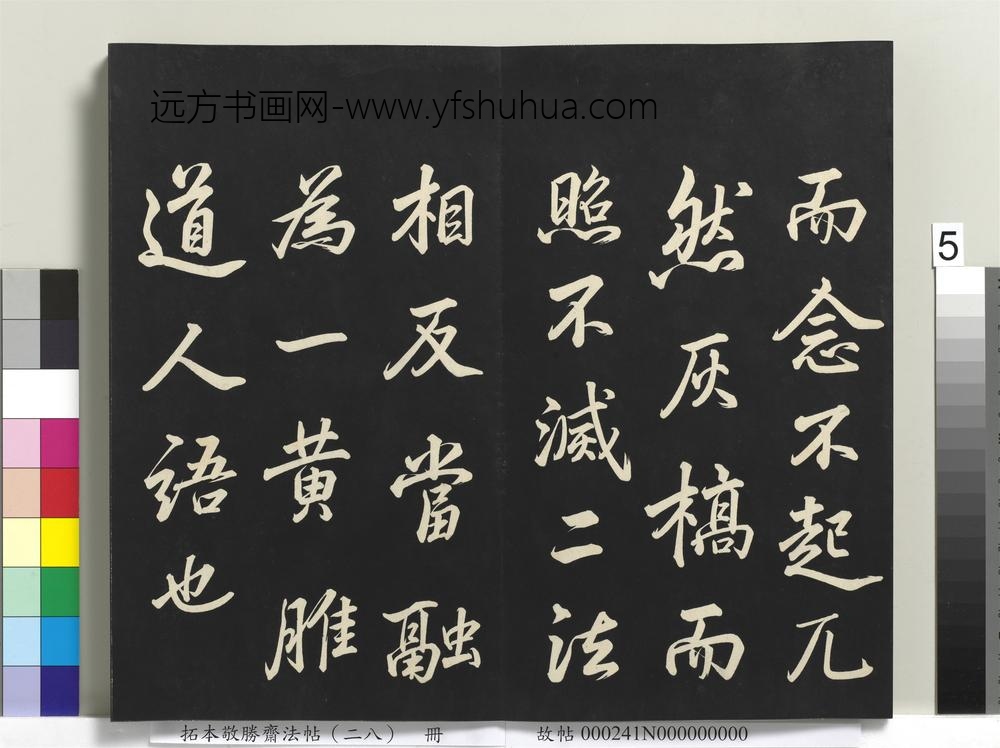 远方书画网-www.yfshuhua.com
而念不起兀
然灰槁而
照不滅二法
相及當融
為一黃雎
道人語也
5
拓本敬勝齋法帖（二八） 冊
故帖 000241N000000000